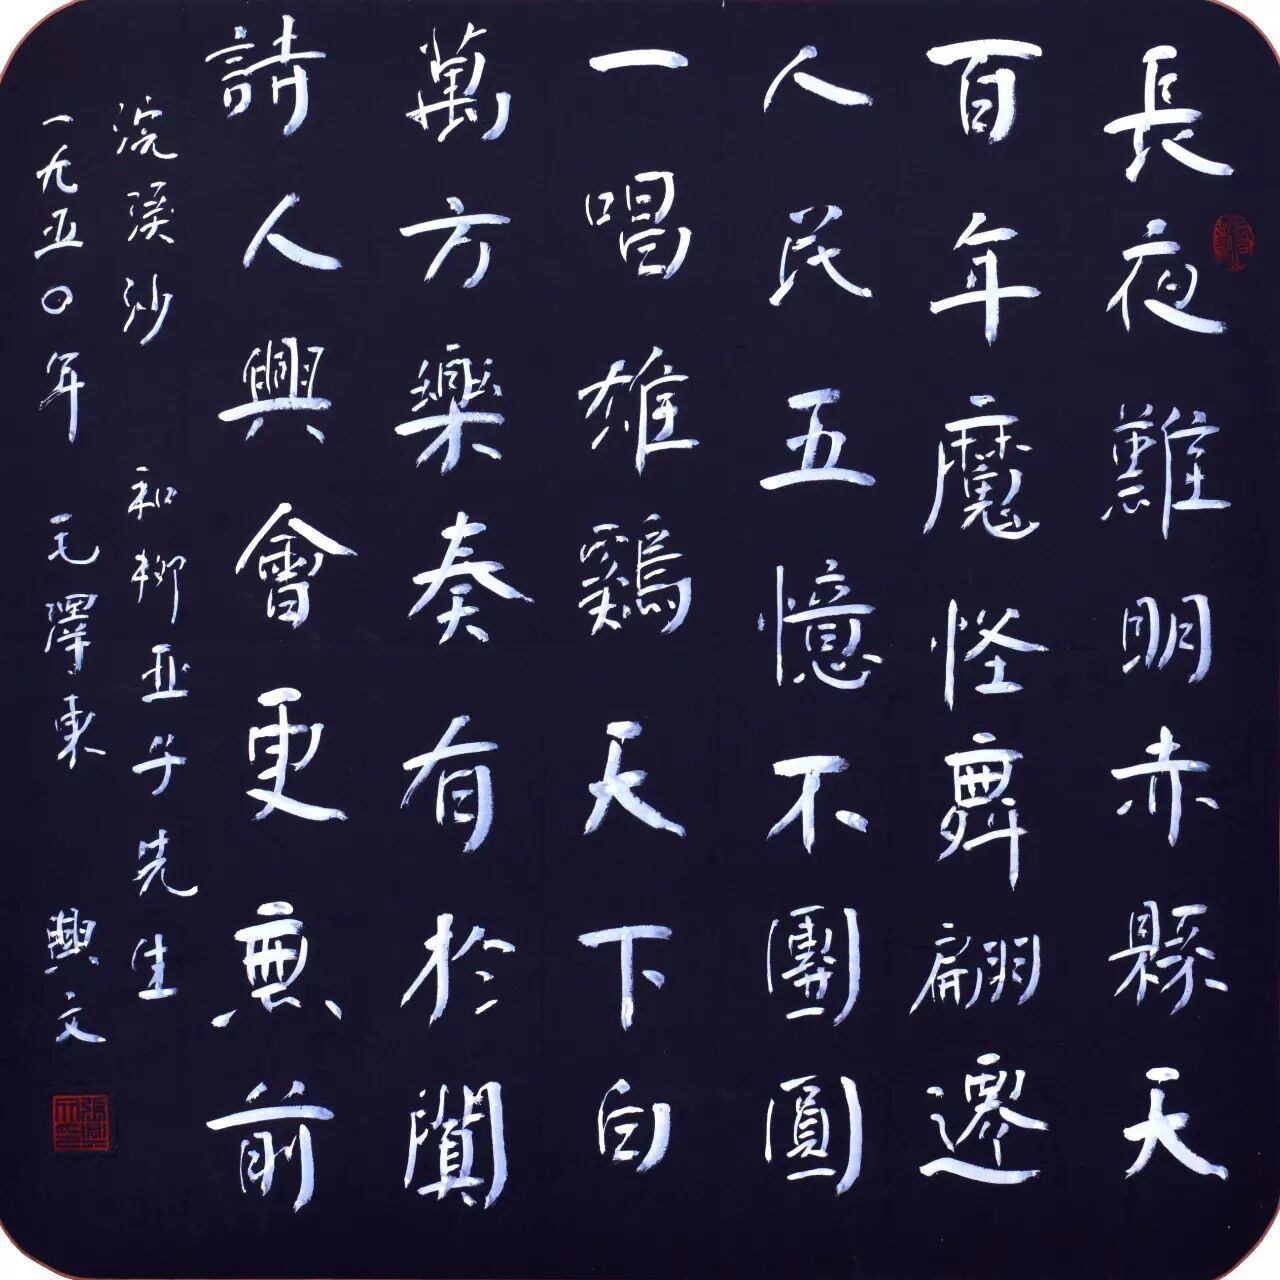 長夜難明赤縣天
百年魔怪舞翩遷
人民五憶不團圓
一唱雄鷄天下白
萬方樂奏有於闐
詩人興會更無前
浣溪沙 和柳亞子先生
一九五〇年 毛澤東 興文